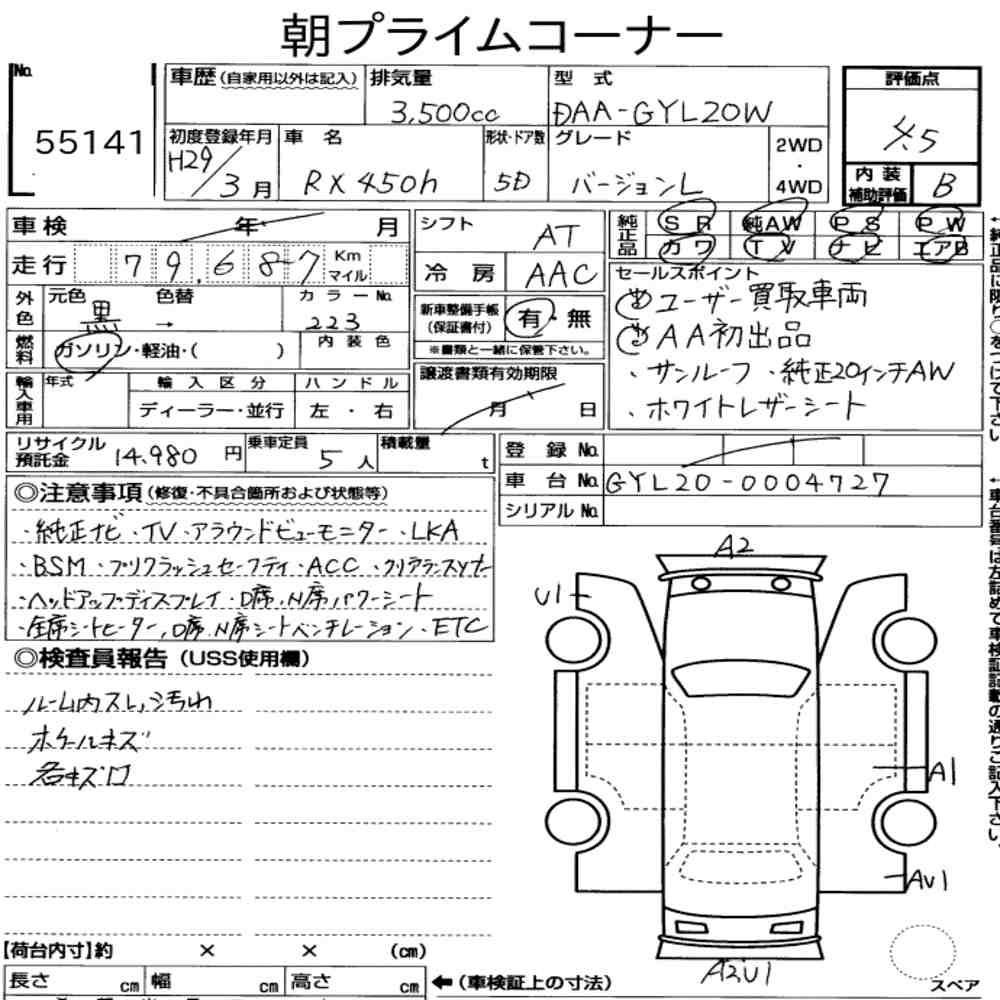 朝プライムコーナー
No.
55141
車歴(自家用以外は記入)
排気量
3,500cc
型 式
DAA-GYL20W
評価点
4.5
初度登録年月
H29/3月
車 名
RX450h
形状・ドア数
5D
グレード
バージョンL
2WD
・
4WD
内装
補助評価
B
車検 年 月
走行 79,687 Km
マイル
シフト
AT
冷房
AAC
純正品
SR 純AW PS PW
カワ TV ナビ エアB
外色
元色
黒
色替
→
カラーNo.
223
燃料
ガソリン・軽油・( )
内装色
新車整備手帳
(保証書付)
有・無
※書類と一緒に保管下さい。
セールスポイント
ユーザー買取車両
AA初出品
・サンルーフ・純正20インチAW
・ホワイトレザーシート
輸入車用
年式
輸入区分
ディーラー・並行
ハンドル
左・右
譲渡書類有効期限
月 日
リサイクル
預託金
14,980円
乗車定員
5人
積載量
t
登録No.
車台No.
GYL20-0004727
シリアルNo.
◎注意事項(修復・不具合箇所および状態等)
・純正ナビ・TV・アラウンドビューモニター・LKA
・BSM・プリクラッシュセーフティ・ACC・クリアランスソナー
・ヘッドアップディスプレイ・D席,N席パワーシート
・全席シートヒーター,D席,N席シートベンチレーション・ETC
◎検査員報告(USS使用欄)
ルーム内スレ,汚れ
ホイールキズ
各キズ
A2
U1
A1
AU1
A2U1
スペア
【荷台内寸】約 × × (cm)
長さ cm 幅 cm 高さ cm
←(車検証上の寸法)
←純正品に限り○をつけて下さい
←車台番号は左詰めで車検証記載の通りご記入下さい。